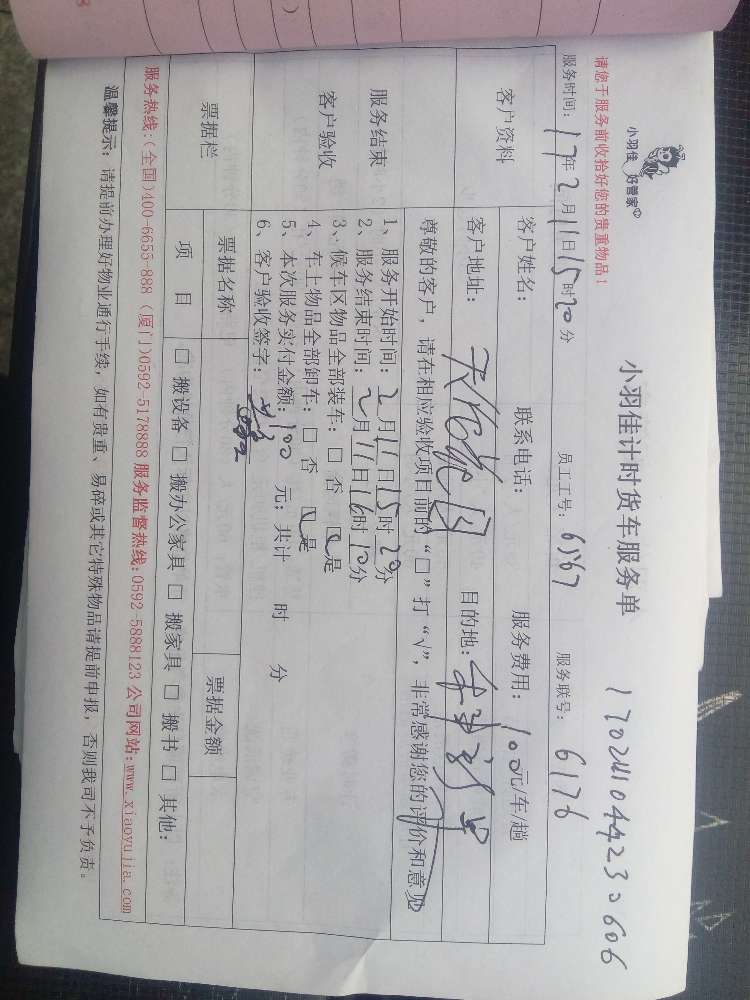 请您于服务前收拾好您的贵重物品！
小羽佳 好管家
小羽佳计时货车服务单
17021104423 0606
服务时间：17年2月11日15时20分 员工工号：6567 服务联号：6176
客户资料
客户姓名： 联系电话： 服务费用：100元/车/趟
客户地址： 目的地：
尊敬的客户，请在相应验收项目前的“□”打“√”，非常感谢您的评价和意见
服务结束
客户验收
1、服务开始时间：2月11日15时20分
2、服务结束时间：2月11日16时10分
3、候车区物品全部装车：□ 否 ☑是
4、车上物品全部卸车：□ 否 ☑是
5、本次服务实付金额：100 元；共计 时 分
6、客户验收签字：
票据栏
票据名称 票据金额
项 目 □ 搬设备 □ 搬办公家具 □ 搬家具 □ 搬书 □ 其他：
服务热线：(全国)400-6655-888 (厦门)0592-5178888 服务监督热线：0592-5888123 公司网站：www.xiaoyujia.com
温馨提示：请提前办理好物业通行手续，如有贵重、易碎或其它特殊物品请提前申报，否则我司不予负责。